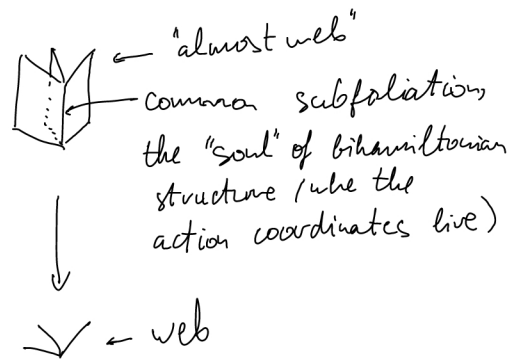 "almost web"
common subfoliation,
the "soul" of bihamiltonian
structure (whe the
action coordinates live)
web